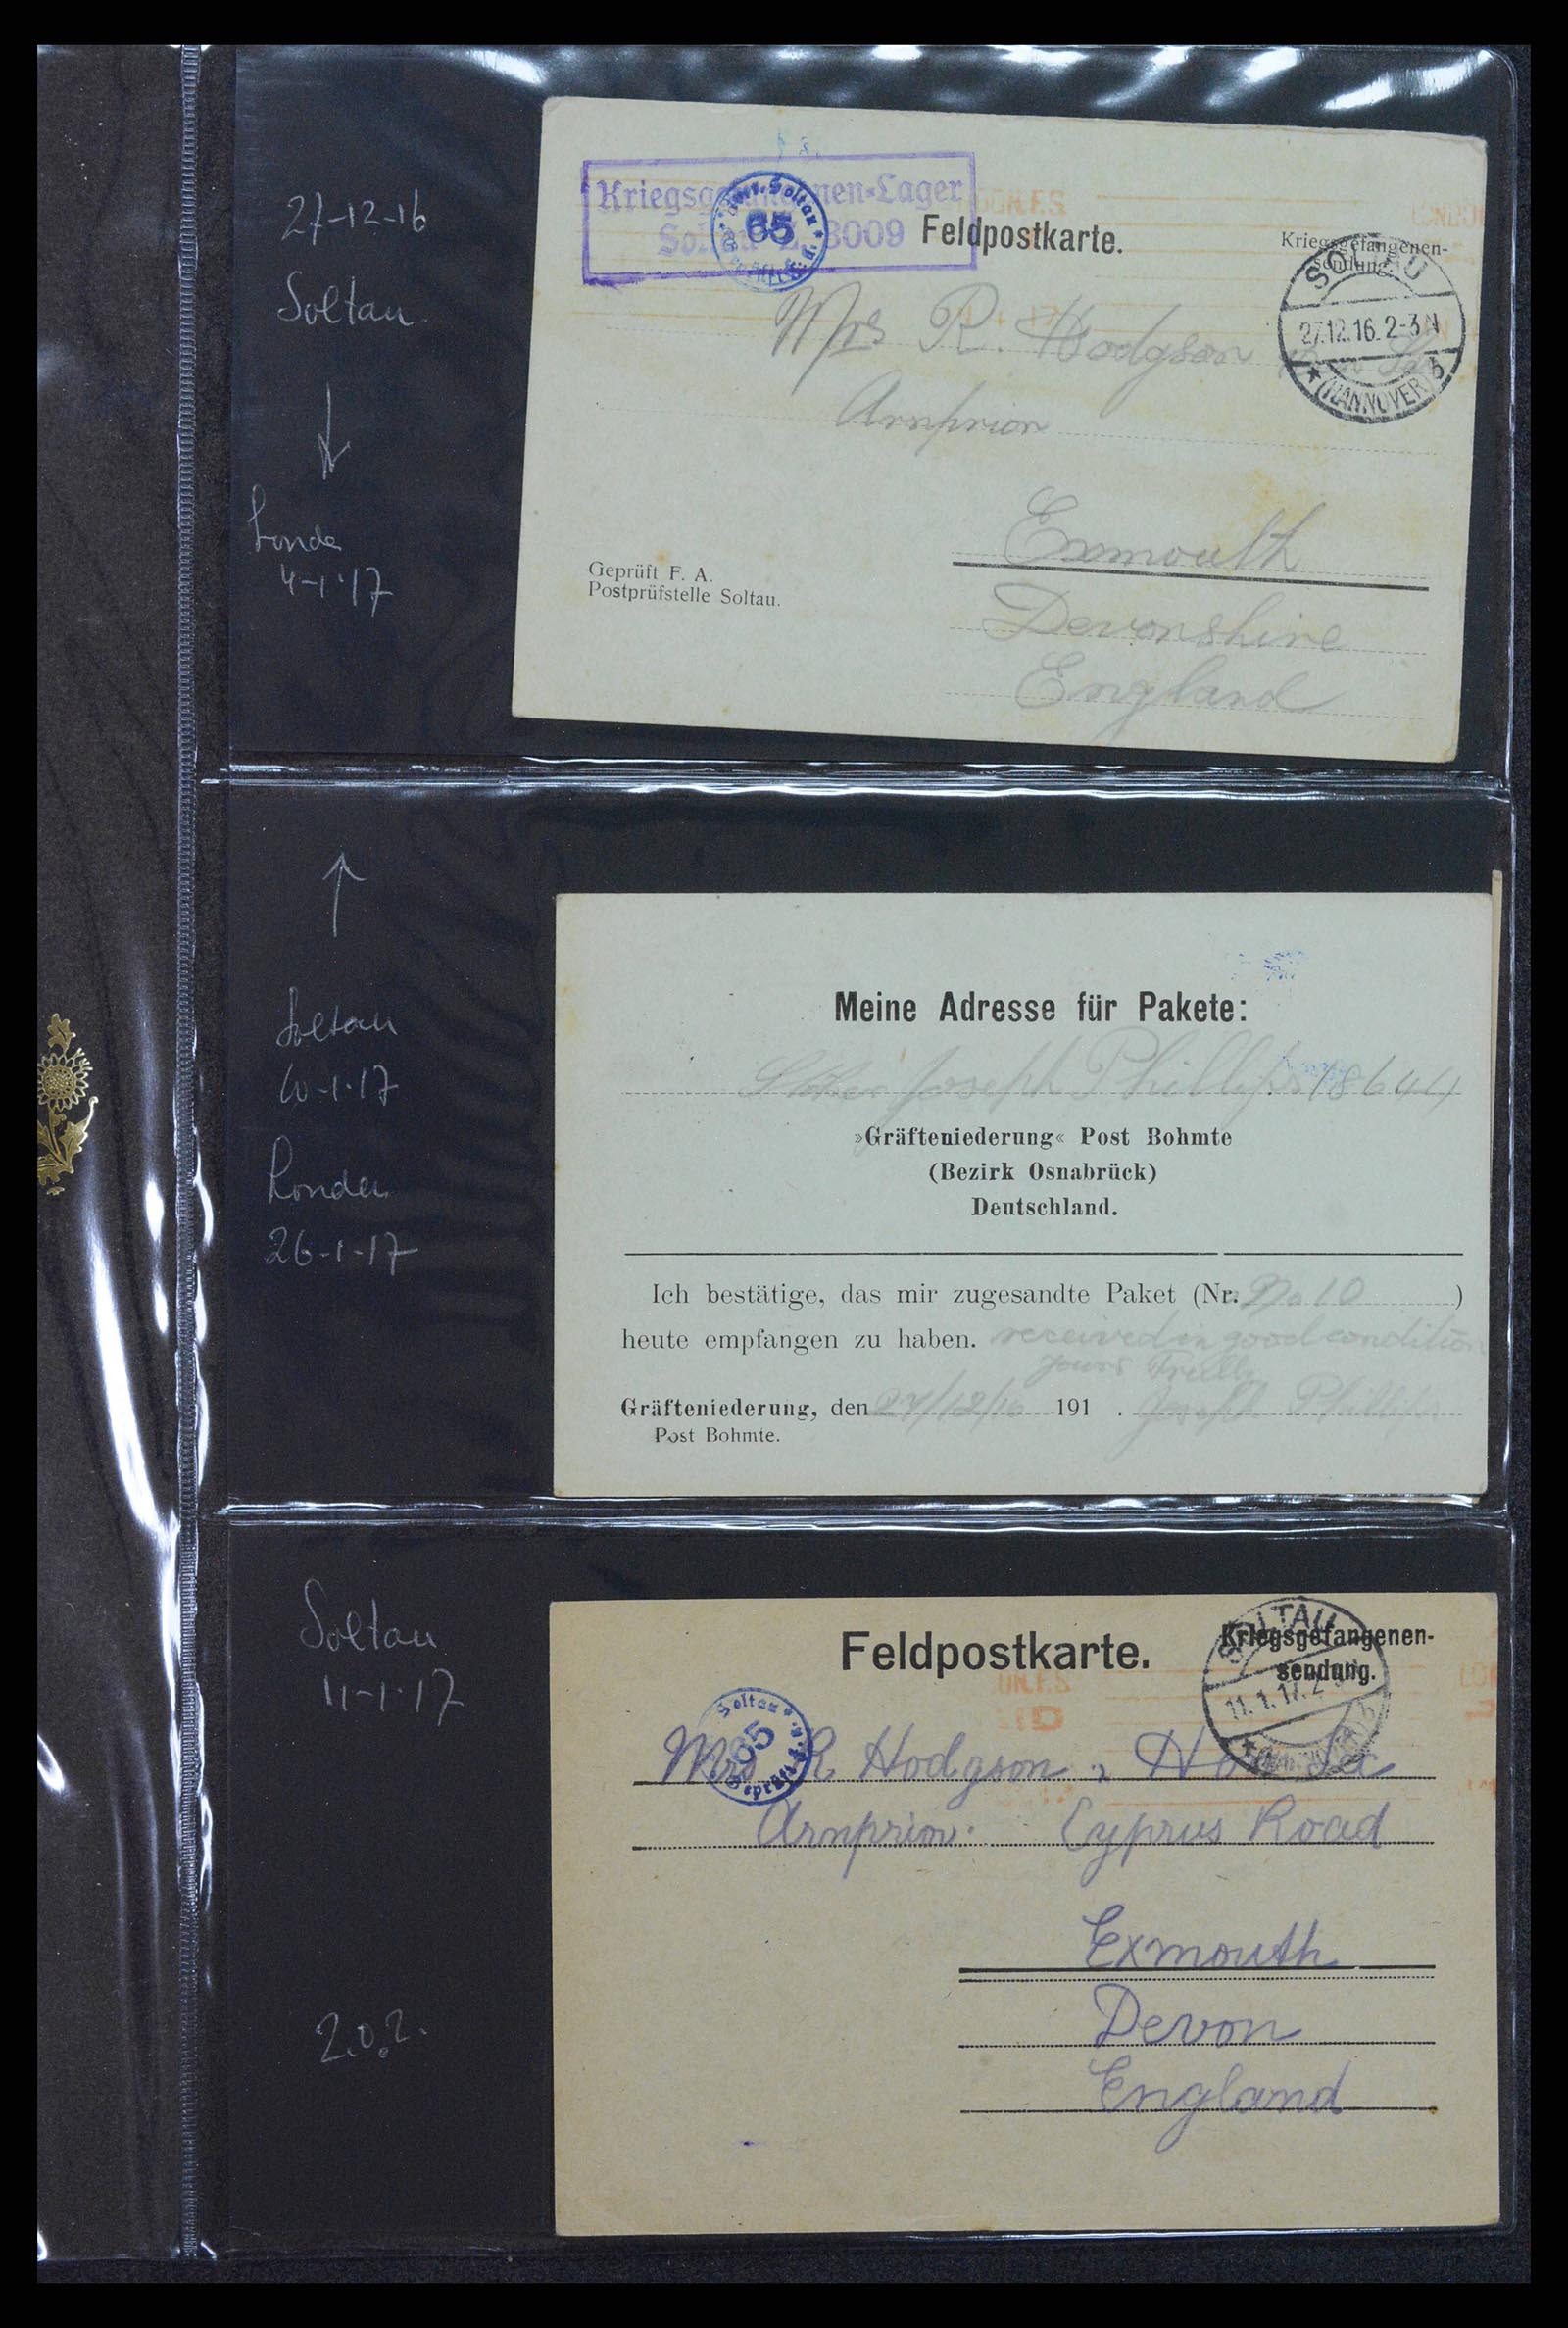 27-12-16
Soltau
4-1-17
Kriegsgefangenen-Lager
Soltau Z. 3009
Soltau
65
Feldpostkarte.
Kriegsgefangenen-
sendung.
SOLTAU
27.12.16. 2-3 N
(HANNOVER) b
Mrs R. Hodgson
Arnprior
Exmouth
Devonshire
England
Geprüft F. A.
Postprüfstelle Soltau.
Soltau
10-1-17
26-1-17
Meine Adresse für Pakete:
Joseph Phillips 18644
»Gräfteniederung« Post Bohmte
(Bezirk Osnabrück)
Deutschland.
Ich bestätige, das mir zugesandte Paket (Nr. No 10 )
heute empfangen zu haben. received in good condition
yours Truly
Gräfteniederung, den 27/12/16 191 . Joseph Phillips
Post Bohmte.
Soltau
11-1-17
2.0.2.
Feldpostkarte.
Kriegsgefangenen-
sendung.
SOLTAU
11.1.17.
Soltau
65
Mrs R. Hodgson,
Arnprior. Cyprus Road
Exmouth
Devon
England